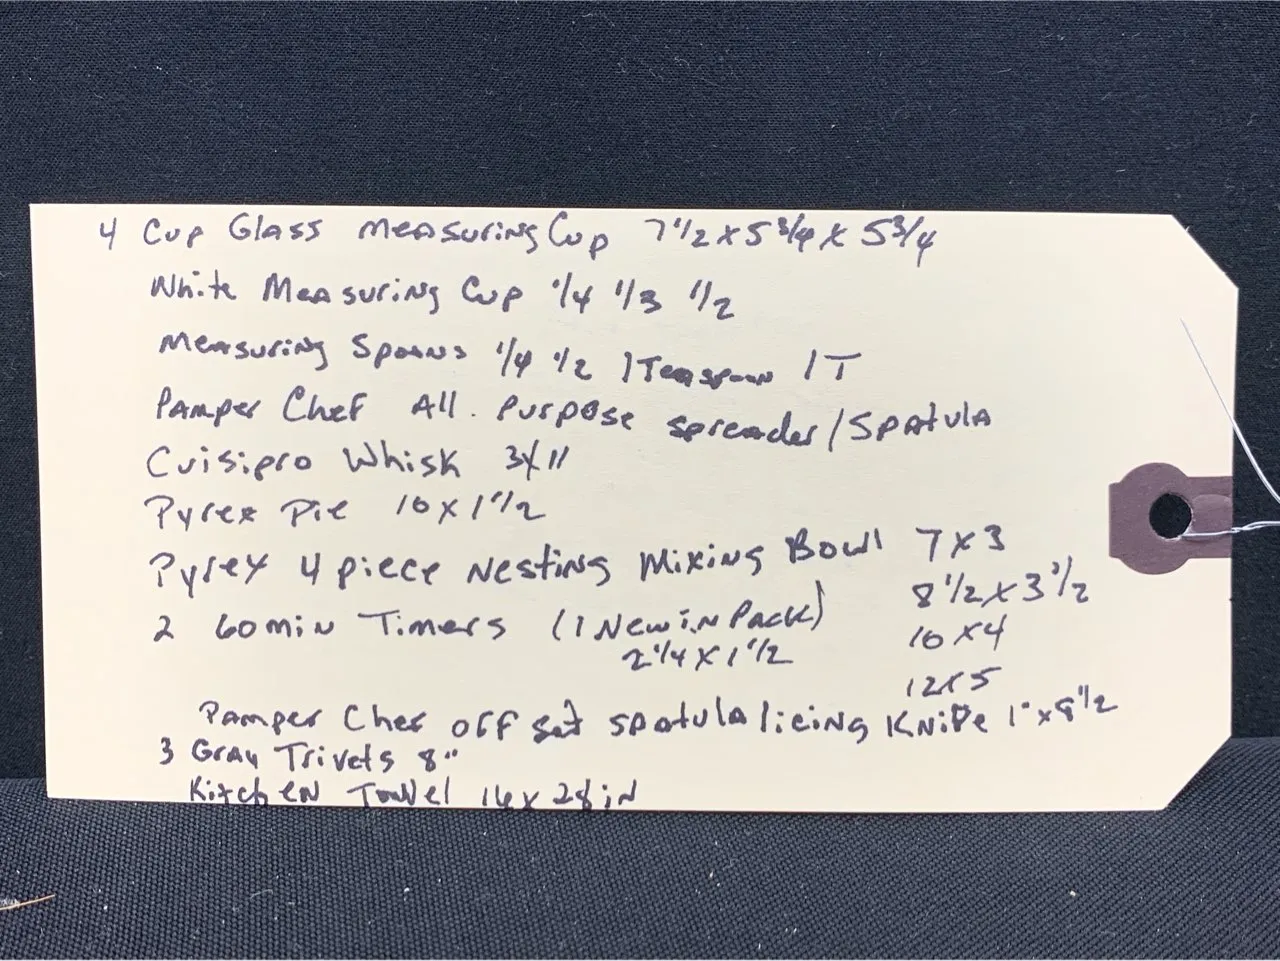 4 Cup Glass Measuring Cup 7 1/2 x 5 3/4 x 5 3/4
White Measuring Cup 1/4 1/3 1/2
Measuring Spoons 1/4 1/2 1 Teaspoon 1 T
Pamper Chef All. Purpose Spreader/Spatula
Cuisipro Whisk 3x11
Pyrex Pie 10 x 1 1/2
Pyrex 4 piece Nesting Mixing Bowl 7 x 3
8 1/2 x 3 1/2
2 60 min Timers (1 New in Pack)
10 x 4
2 1/4 x 1 1/2
12 x 5
Pamper Chef off set spatula licing Knife 1" x 8 1/2
3 Gray Trivets 8"
Kitchen Towel 16 x 28 in